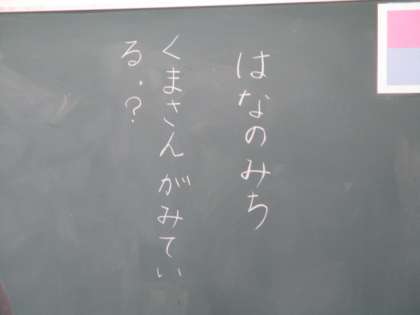 はなのみち
くまさんがみてい
る.?